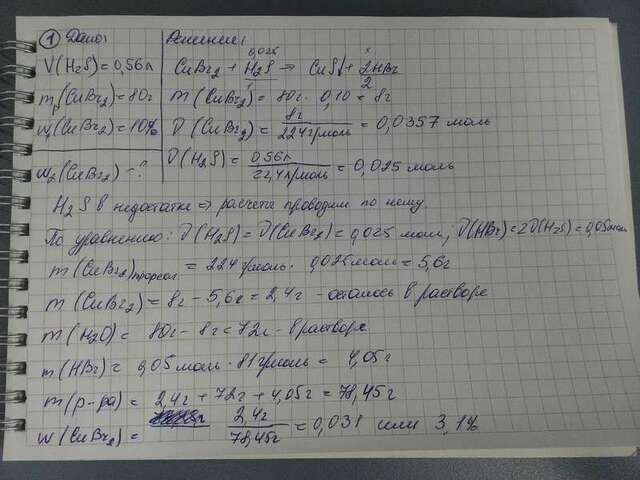 ① Дано: Решение:
V(H₂S)=0,56л
0,025 x
CuBr₂ + H₂S → CuS↓ + 2HBr
1 2
mр(CuBr₂)=80г
m(CuBr₂)=80г · 0,10 = 8г
w₁(CuBr₂)=10%
ν(CuBr₂) = 8г / 224г/моль = 0,0357 моль
w₂(CuBr₂) - ?
ν(H₂S) = 0,56л / 22,4л/моль = 0,025 моль
H₂S в недостатке ⇒ расчеты проводим по нему.
По уравнению: ν(H₂S) = ν(CuBr₂) = 0,025 моль, ν(HBr)=2ν(H₂S)=0,05моль
m(CuBr₂)прореаг = 224г/моль · 0,025моль = 5,6г
m(CuBr₂) = 8г - 5,6г = 2,4г - осталось в растворе
m(H₂O) = 80г - 8г = 72г - в растворе
m(HBr) = 0,05моль · 81г/моль = 4,05г
m(р-ра) = 2,4г + 72г + 4,05г = 78,45г
w(CuBr₂) = 2,4г / 78,45г = 0,031 или 3,1%